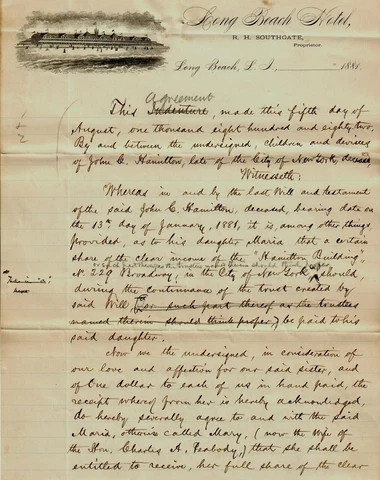 Long Beach Hotel,
R. H. SOUTHGATE,
Proprietor.
Long Beach, L. I., 1881.
Agreement
This Indenture, made this fifth day of
August, one thousand eight hundred and eighty two,
By and between the undersigned, children and devisees
of John C. Hamilton, late of the City of New York, deceased,
Witnesseth:
Whereas in and by the last Will and testament
of the said John C. Hamilton, deceased, bearing date on
the 13th day of January, 1881, it is, among other things,
provided, as to his daughter Maria that a certain
share of the clear income of the "Hamilton Building",
No. 229 Broadway, in the City of New York, should,
during the continuance of the trust created by
said Will (or such part thereof as the trustees
named therein should think proper,) be paid to his
said daughter.
Now we the undersigned, in consideration of
our love and affection for our said sister, and
of One dollar to each of us in hand paid, the
receipt whereof from her is hereby acknowledged,
do hereby severally agree to and with the said
Maria, otherwise called Mary, (now the wife of
the Hon. Charles A. Peabody,) that she shall be
entitled to receive, her full share of the clear